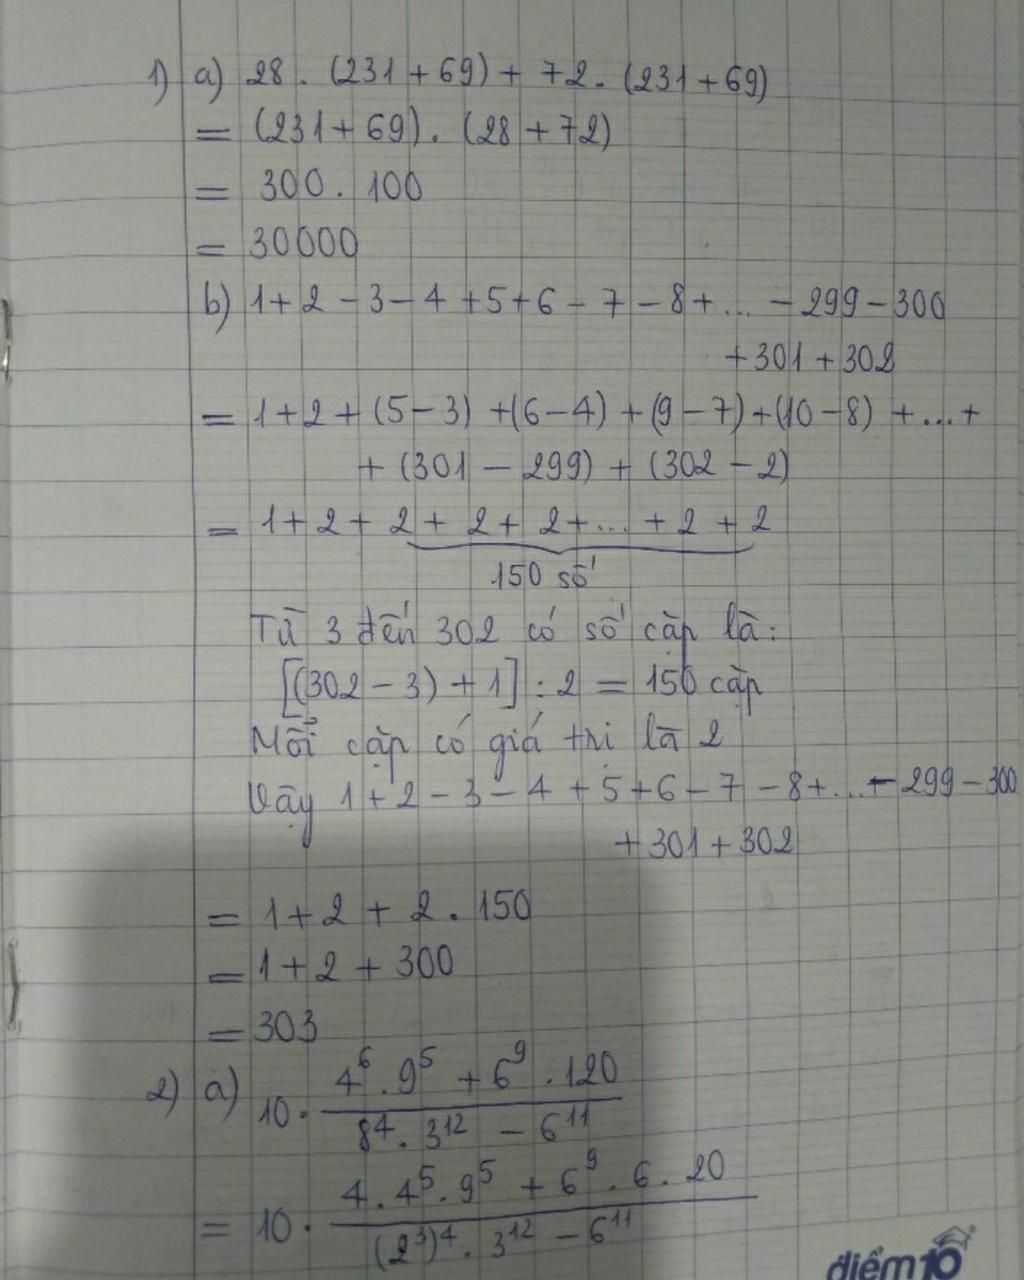 1) a) 28 . (231 + 69) + 72 . (231 + 69)
= (231 + 69) . (28 + 72)
= 300 . 100
= 30000
b) 1 + 2 - 3 - 4 + 5 + 6 - 7 - 8 + ... - 299 - 300
+ 301 + 302
= 1 + 2 + (5 - 3) + (6 - 4) + (9 - 7) + (10 - 8) + ... +
+ (301 - 299) + (302 - 2)
= 1 + 2 + 2 + 2 + 2 + ... + 2 + 2
150 số
Từ 3 đến 302 có số cặp là:
[(302 - 3) + 1] : 2 = 150 cặp
Mỗi cặp có giá trị là 2
Vậy 1 + 2 - 3 - 4 + 5 + 6 - 7 - 8 + ... - 299 - 300
+ 301 + 302
= 1 + 2 + 2 . 150
= 1 + 2 + 300
= 303
2) a) 10 . (4⁶ . 9⁵ + 6⁹ . 120) / (8⁴ . 3¹² - 6¹¹)
= 10 . (4 . 4⁵ . 9⁵ + 6⁹ . 6 . 20) / ((2³)⁴ . 3¹² - 6¹¹)
điểm10